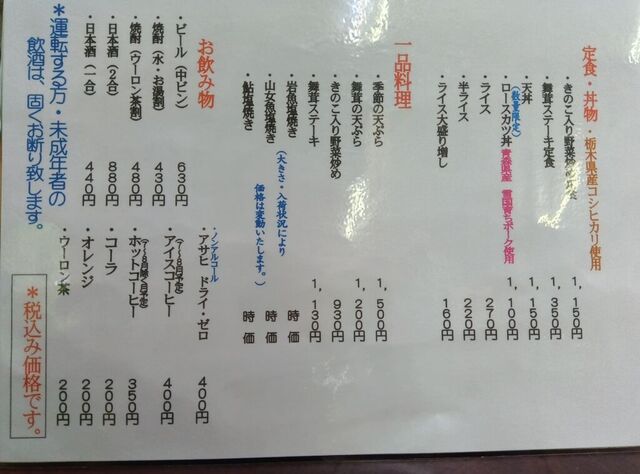 定食・丼物・栃木県産コシヒカリ使用
・きのこ入り野菜炒め定食 1,150円
・舞茸ステーキ定食 1,350円
・天丼 1,150円
(数量限定)
・ロースカツ丼 青森県産 雪国育ちポーク使用 1,100円
・ライス 270円
・半ライス 220円
・ライス大盛り増し 160円
一品料理
・季節の天ぷら 1,500円
・舞茸の天ぷら 1,200円
・きのこ入り野菜炒め 930円
・舞茸ステーキ 1,130円
・岩魚塩焼き 時価
・山女魚塩焼き 時価
・鮎塩焼き 時価
(大きさ・入荷状況により
価格は変動いたします。)
お飲み物
・ビール(中ビン) 630円
・焼酎(水・お湯割) 430円
・焼酎(ウーロン茶割) 480円
・日本酒(2合) 880円
・日本酒(一合) 440円
・ノンアルコール
アサヒ ドライ・ゼロ 400円
・アイスコーヒー 400円
・ホットコーヒー 350円
・コーラ 200円
・オレンジ 200円
・ウーロン茶 200円
*運転する方・未成年者の
飲酒は、固くお断り致します。
*税込み価格です。